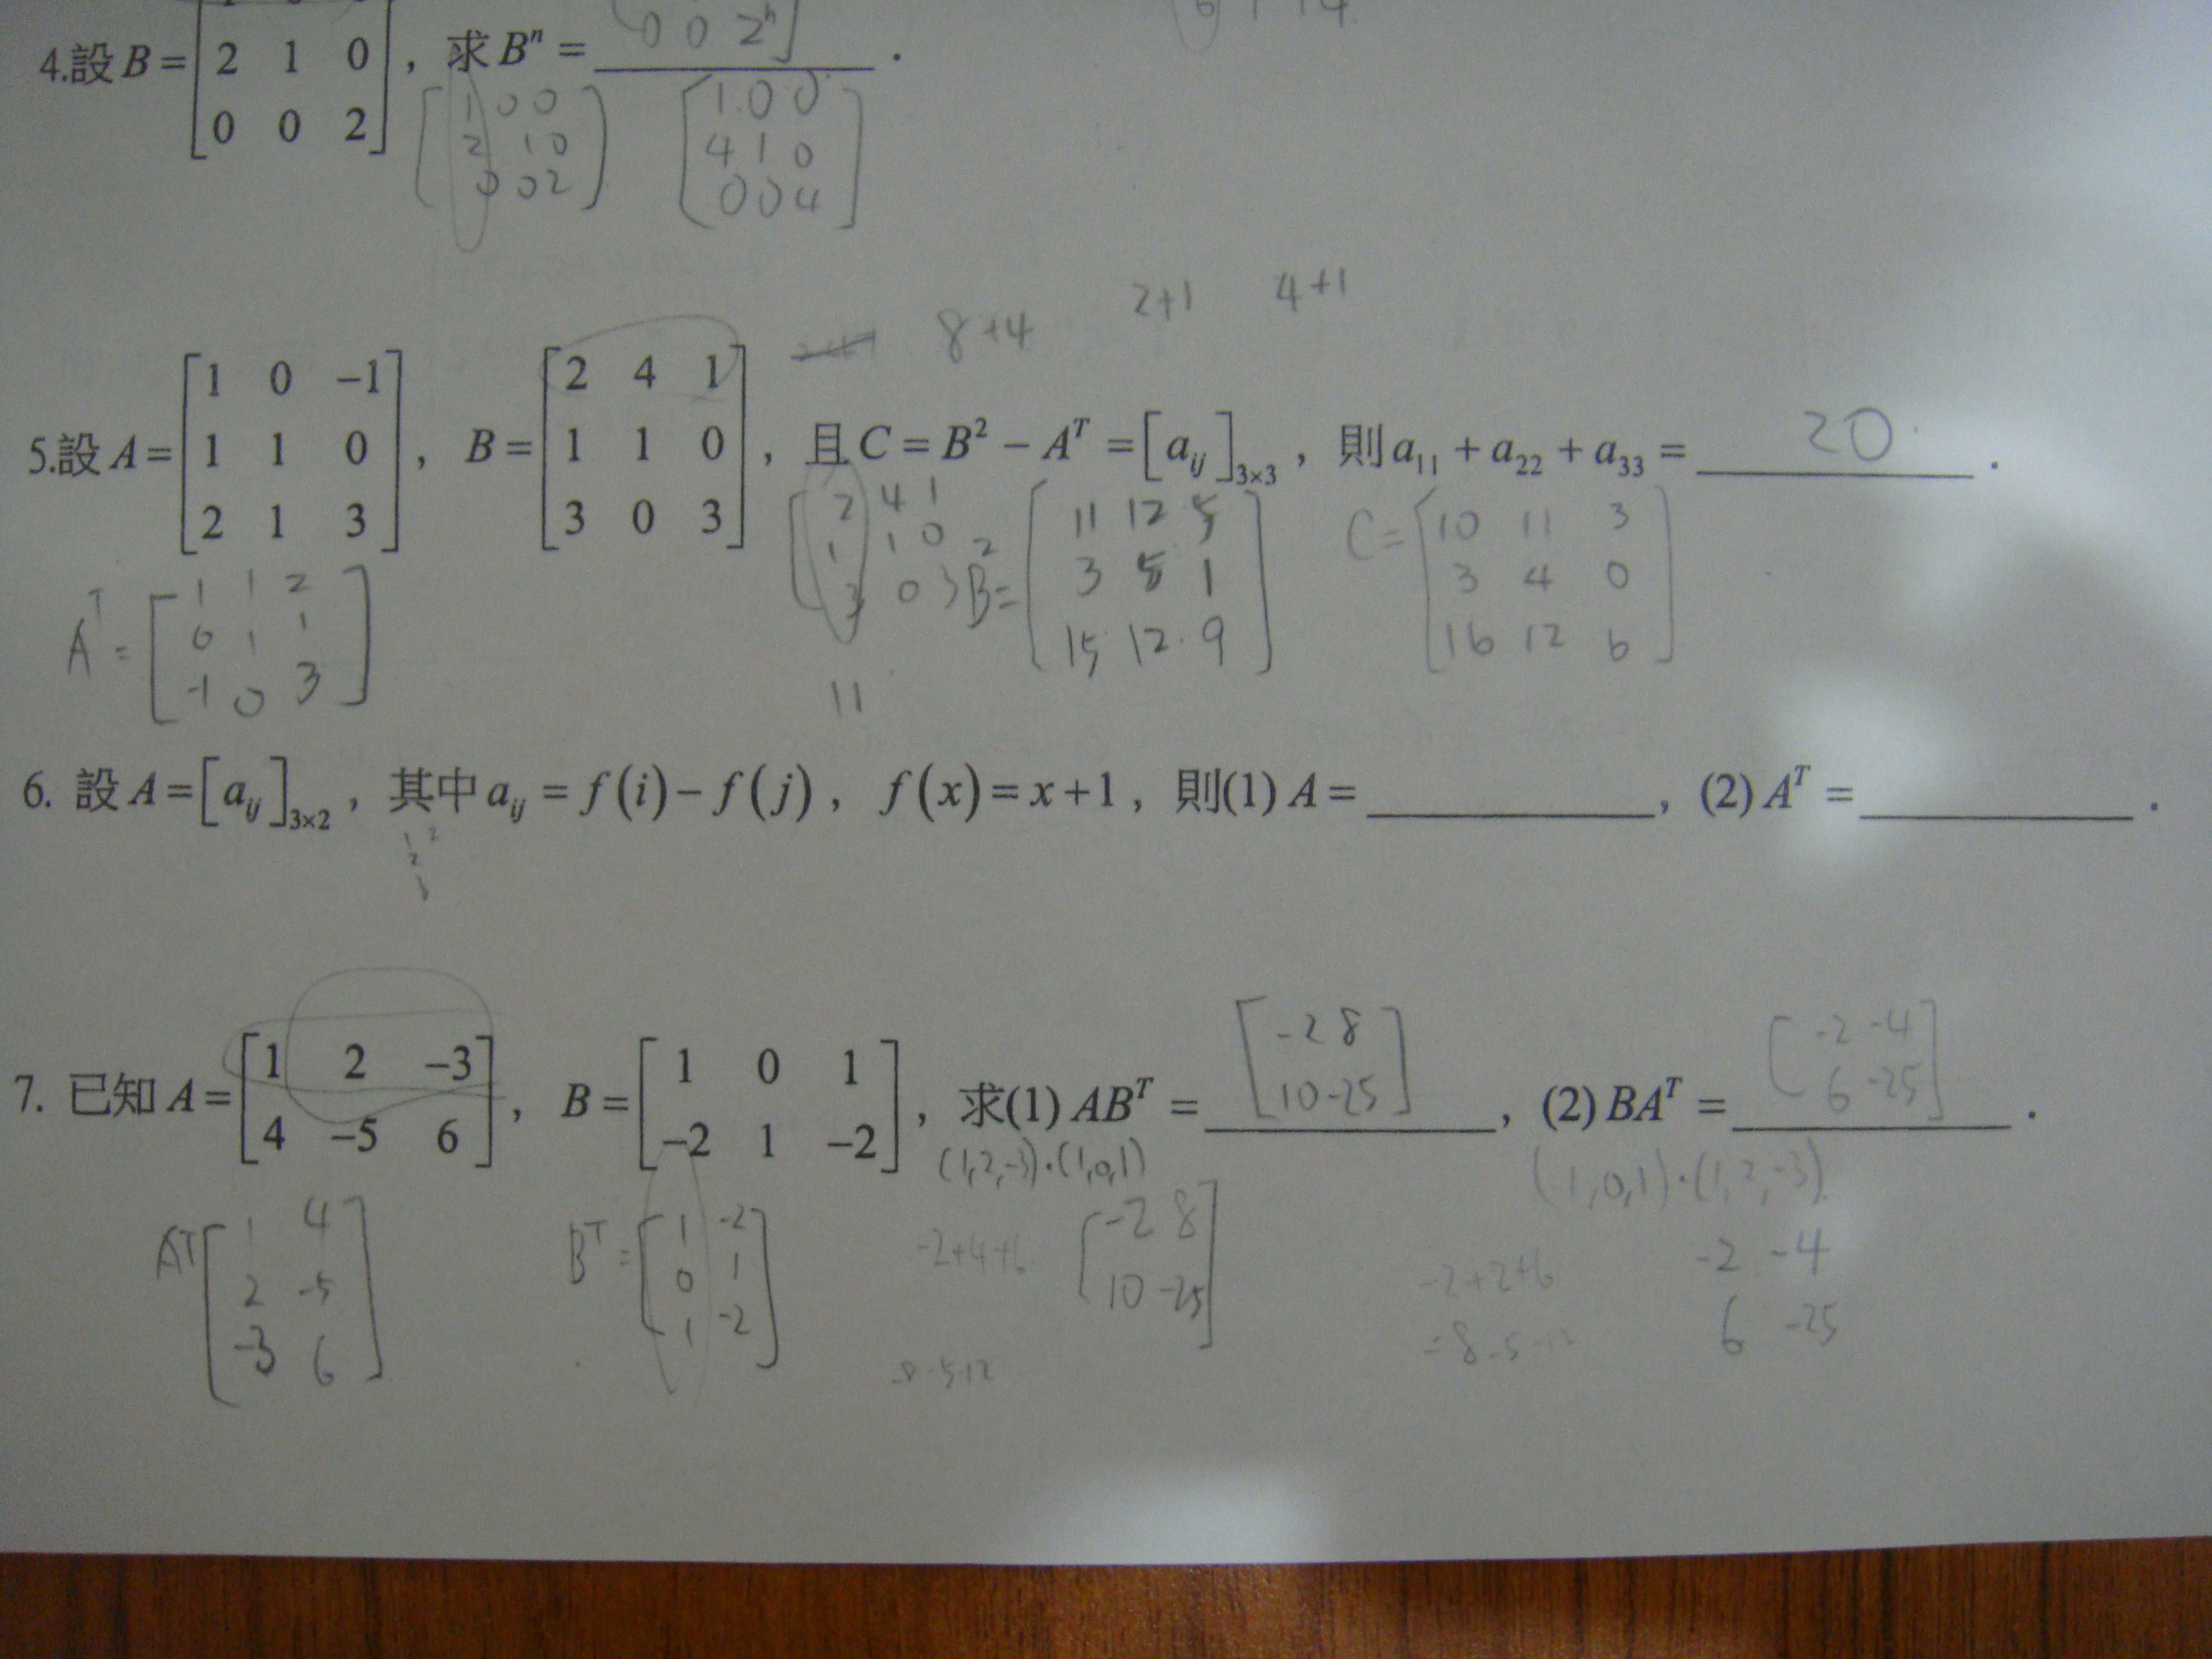 0 0 2ⁿ
6 1 14
4.設 B = [2 1 0; 0 0 2] , 求 Bⁿ = ______ .
[1 0 0; 2 1 0; 0 0 2] [1 0 0; 4 1 0; 0 0 4]
8+4 2+1 4+1
5.設 A = [1 0 −1; 1 1 0; 2 1 3] , B = [2 4 1; 1 1 0; 3 0 3] , 且 C = B² − Aᵀ = [aᵢⱼ]₃ₓ₃ , 則 a₁₁ + a₂₂ + a₃₃ = 20 .
[2 4 1; 1 1 0; 3 0 3] B² = [11 12 5; 3 5 1; 15 12 9] C = [10 11 3; 3 4 0; 16 12 6]
Aᵀ = [1 1 2; 0 1 1; -1 0 3]
11
6. 設 A = [aᵢⱼ]₃ₓ₂ , 其中 aᵢⱼ = f(i) − f(j) , f(x) = x+1 , 則(1) A = ______ , (2) Aᵀ = ______ .
1 2
2
3
7. 已知 A = [1 2 −3; 4 −5 6] , B = [1 0 1; −2 1 −2] , 求(1) ABᵀ = [-2 8; 10 -25] , (2) BAᵀ = [-2 -4; 6 -25] .
(1,2,-3)·(1,0,1) (1,0,1)·(1,2,-3)
Aᵀ [1 4; 2 -5; -3 6] Bᵀ = [1 -2; 0 1; 1 -2] -2+4+6 [-2 8; 10 -25] -2+2+6 -2 -4
=-8-5-12 6 -25
-8-5-12